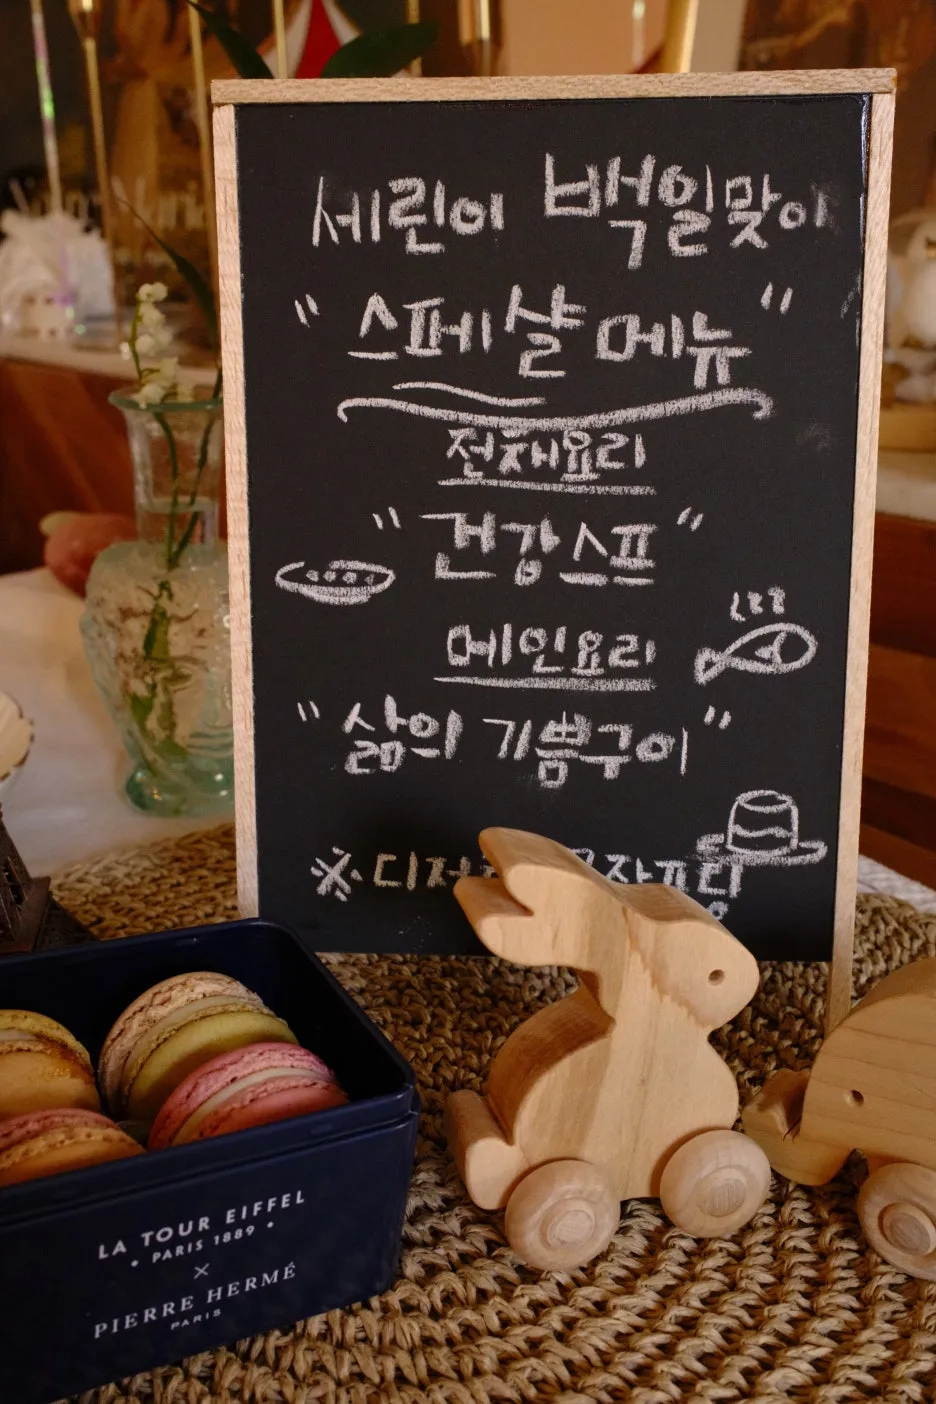 세린이 백일맞이
"스페샬 메뉴"
전채요리
"건강스프"
메인요리
"삶의 기쁨구이"
※디저
LA TOUR EIFFEL
• PARIS 1889 •
×
PIERRE HERMÉ
PARIS